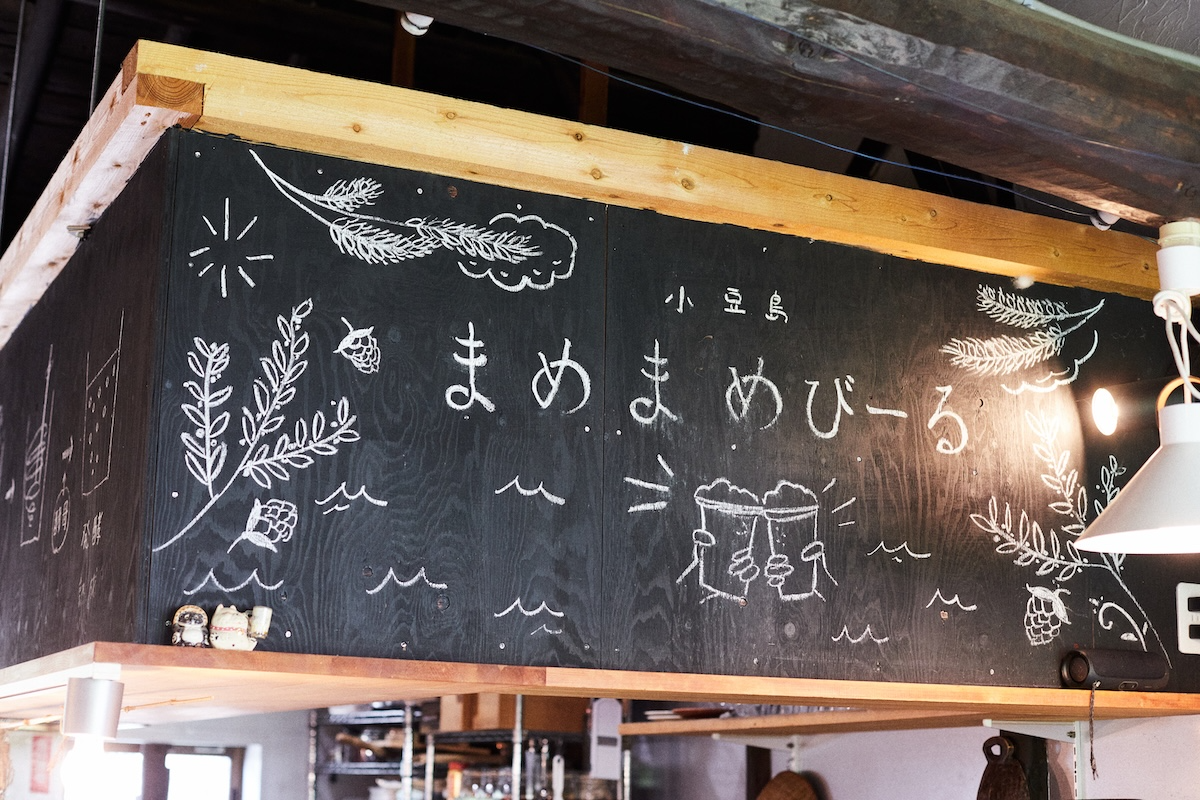 小豆島
まめまめびーる
発酵